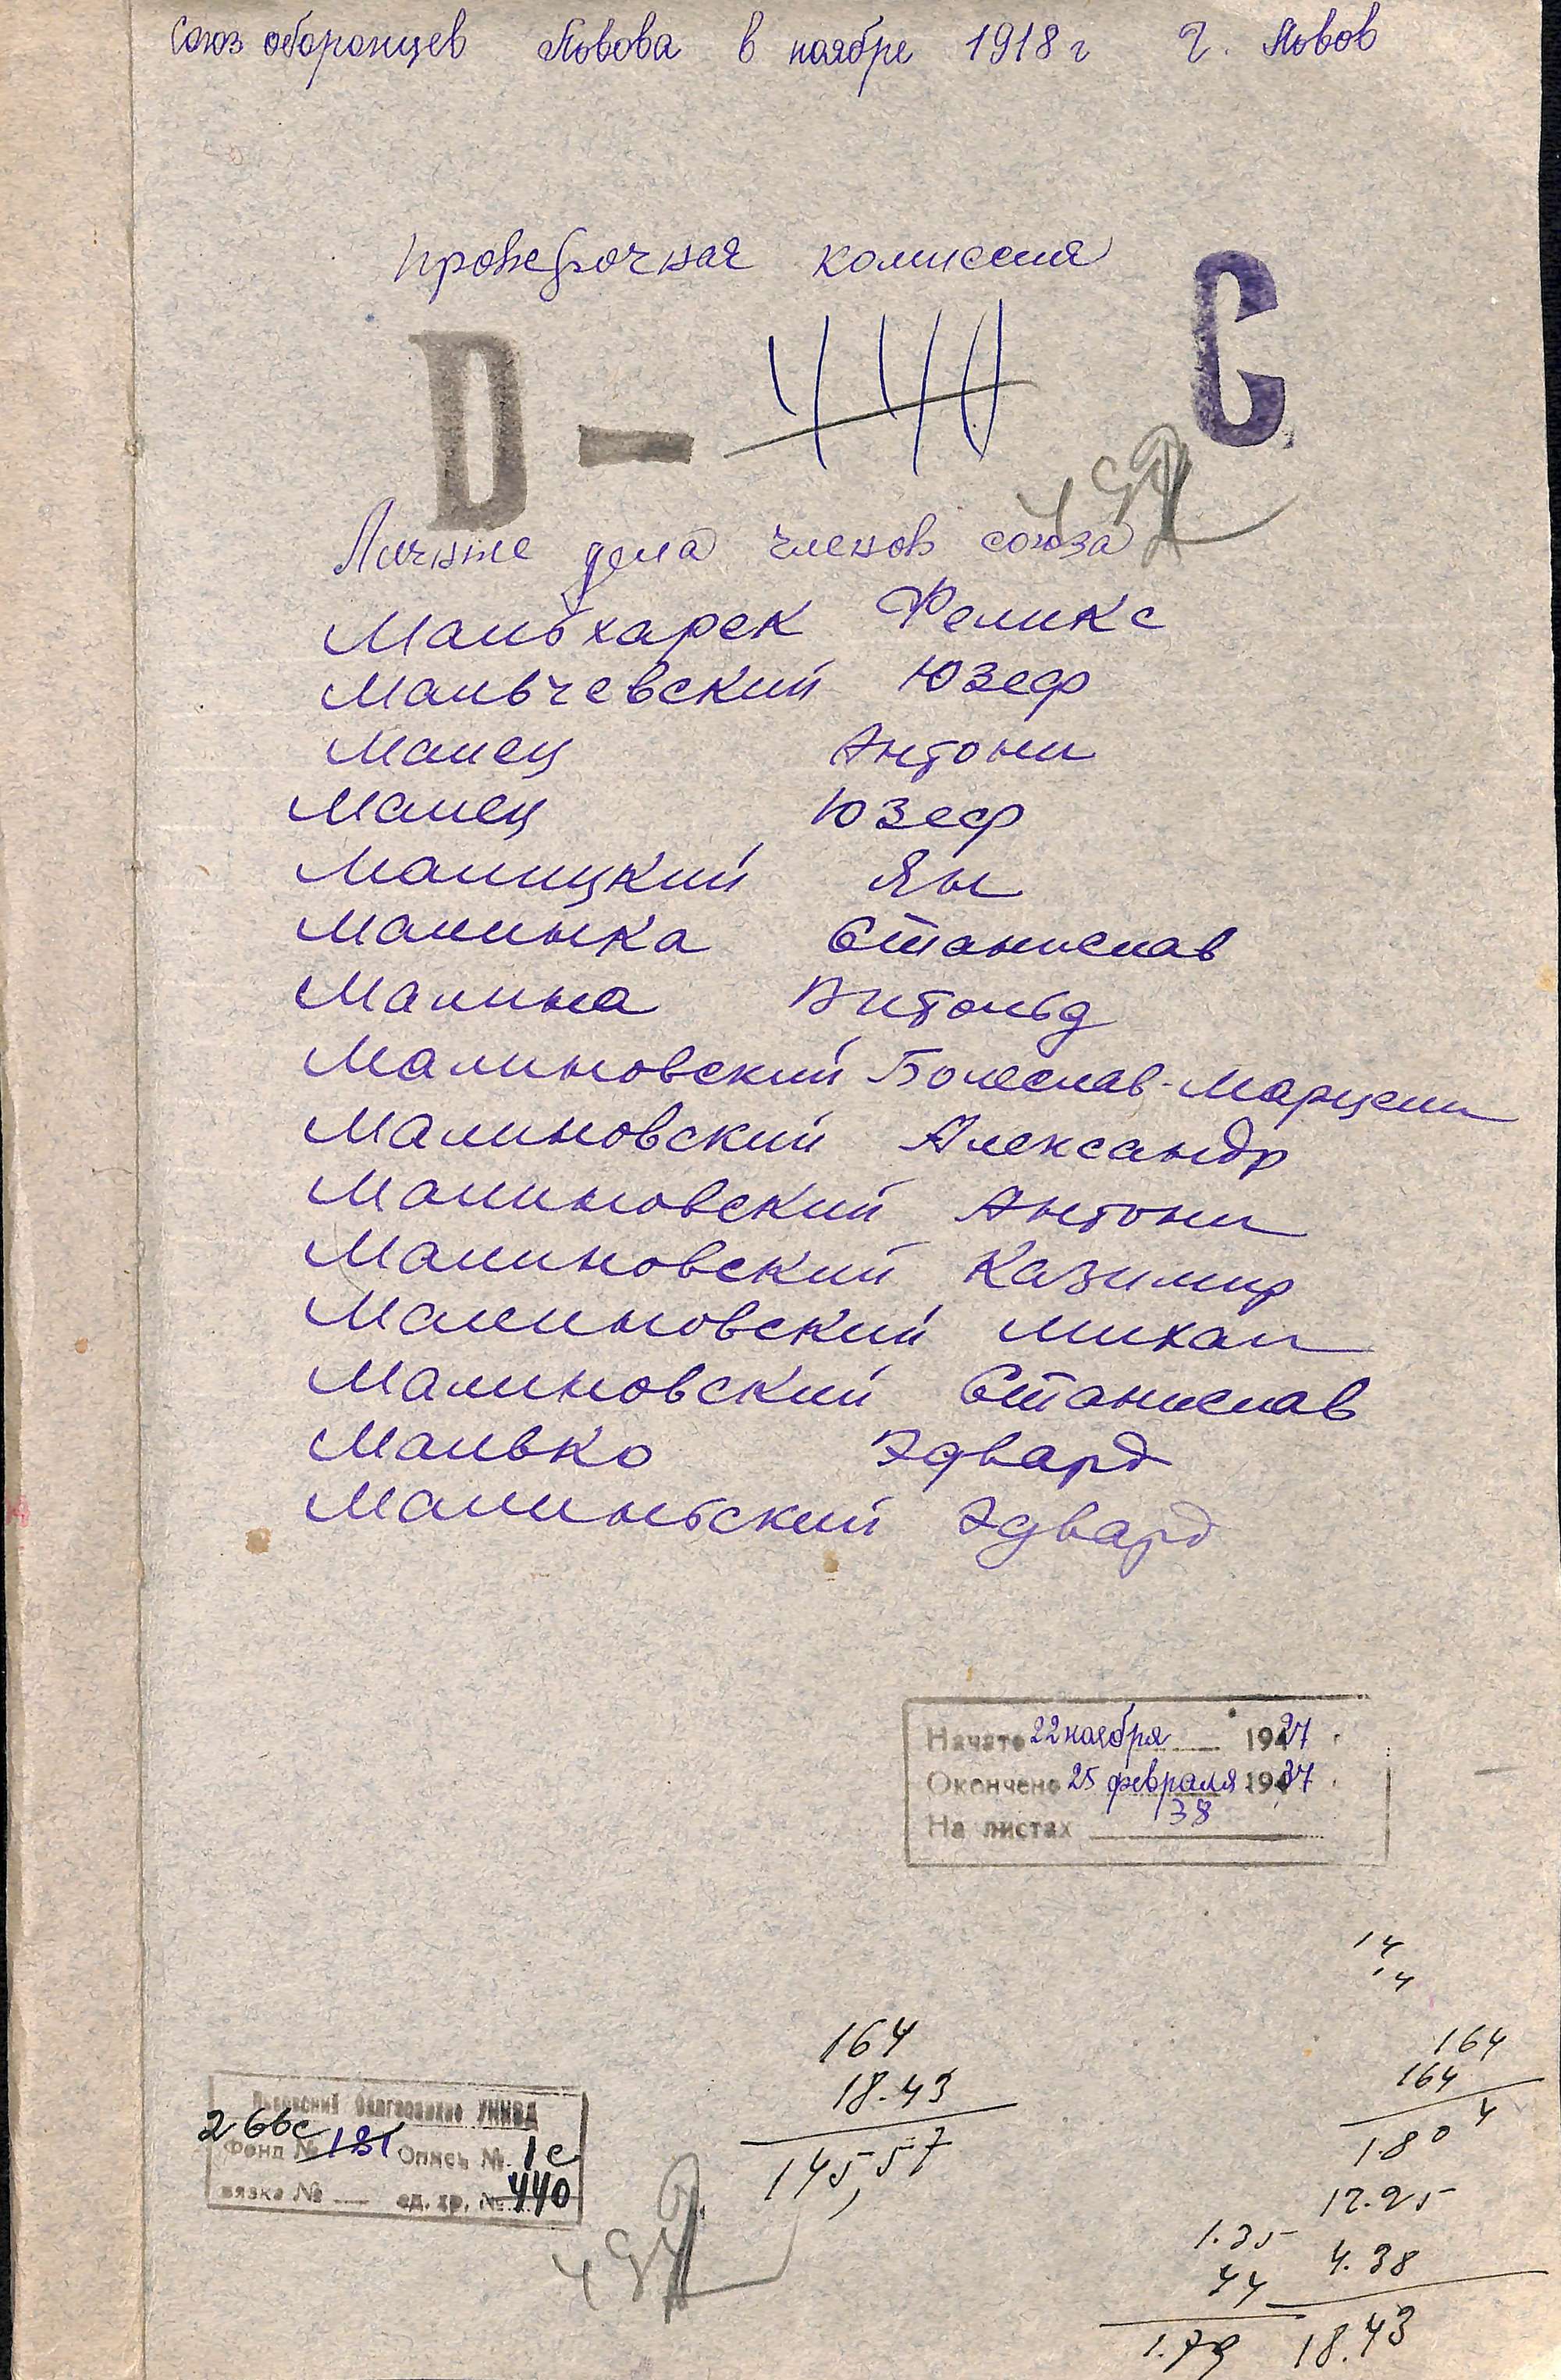 Союз оборонцев Львова в ноябре 1918 г г. Львов
Проверочная комиссия
С
D — 440
Личные дела членов союза
Мальхарек Феликс
Мальчевский Юзеф
Малец Антони
Малец Юзеф
Малицкий Ян
Малинка Станислав
Малина Витольд
Малиновский Болеслав-Марцели
Малиновский Александр
Малиновский Антони
Малиновский Казимир
Малиновский Михал
Малиновский Станислав
Малько Эдвард
Малиньский Эдвард
Начато 22 ноября 1927
Окончено 25 февраля 1937
На листах 138
14
14
164
18.43
145,57
164
164
180 4
12.25
1.35
4.38
44
1.79
18.43
УНКВД
266с
Фонд № 131 Опись № 1с
вязка № — ед. хр. № 440